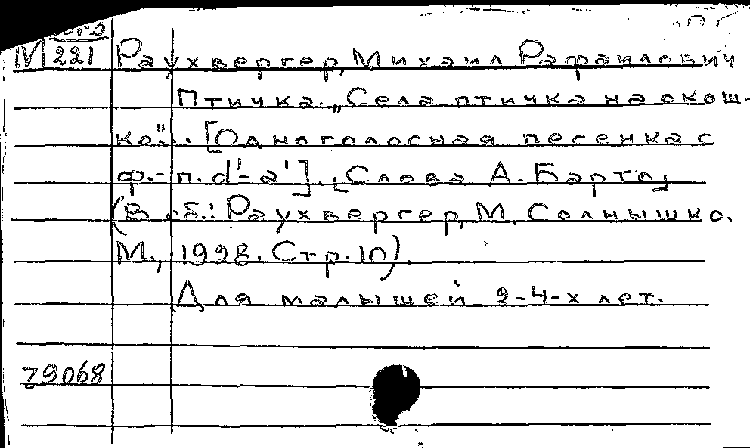 М 221 Раухвергер, Михаил Рафаилович
Птичка. „Села птичка на окош-
ко". [Одноголосная песенка с
ф.-п. d¹-a¹]. [Слова А. Барто]
(В сб.: Раухвергер, М. Солнышко.
М., 1928. Стр. 10).
Для малышей 2-4-х лет.
79068